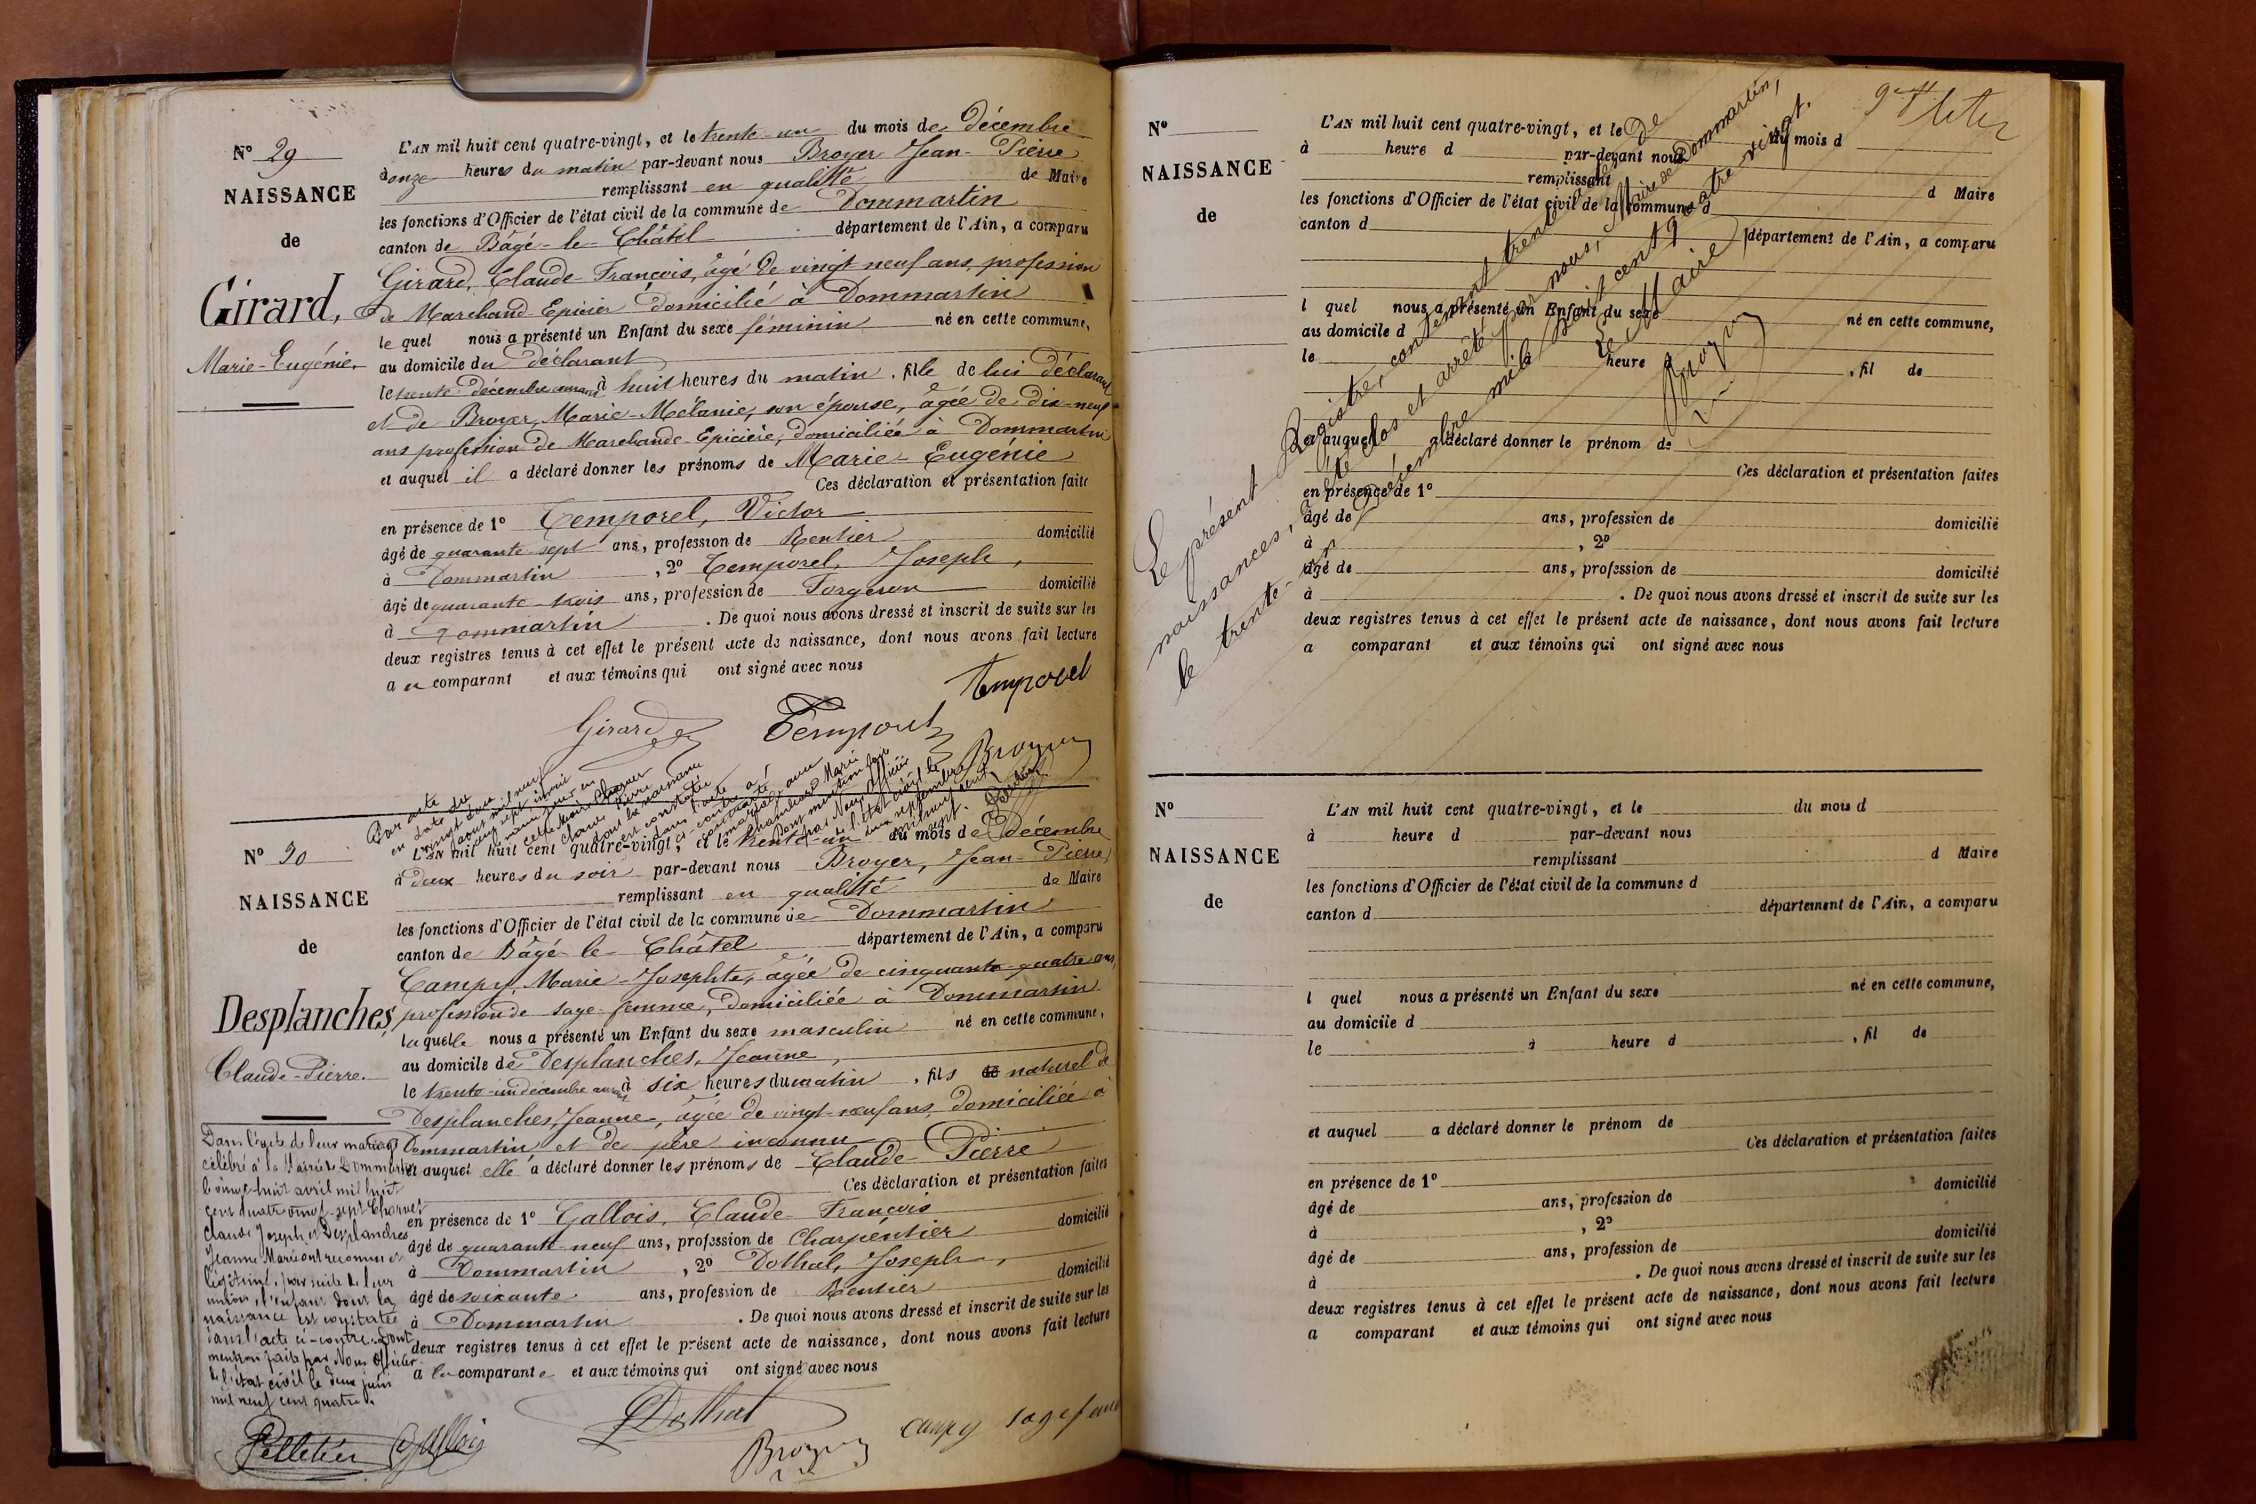 N° 29
NAISSANCE
de
Girard,
Marie-Eugénie
L'AN mil huit cent quatre-vingt, et le trente-un du mois de Décembre
à onze heures du matin par-devant nous Broyer Jean-Pierre
remplissant en qualité de Maire
les fonctions d'Officier de l'état civil de la commune de Dommartin
canton de Bâgé-le-Châtel département de l'Ain, a comparu
Girard, Claude-François, âgé de vingt neuf ans, profession
de Marchand Epicier domicilié à Dommartin
le quel nous a présenté un Enfant du sexe féminin né en cette commune,
au domicile du déclarant
le trente décembre courant à huit heures du matin, fille de lui déclarant
et de Broyer, Marie-Mélanie, son épouse, âgée de dix-neuf
ans profession de Marchande-Epicière, domiciliée à Dommartin
et auquel il a déclaré donner les prénoms de Marie-Eugénie
Ces déclaration et présentation faite
en présence de 1° Temporel, Victor
âgé de quarante-sept ans, profession de Rentier domicilié
à Dommartin, 2° Temporel, Joseph,
âgé de quarante-trois ans, profession de Forgeron domicilié
à Dommartin. De quoi nous avons dressé et inscrit de suite sur les
deux registres tenus à cet effet le présent acte de naissance, dont nous avons fait lecture
au comparant et aux témoins qui ont signé avec nous
Temporel
Girard Temporel
Broyer
Par acte du
en date du
vingt deux
août mil neuf
cent sept inscrit
le même jour en
cette Mairie Chaguer
Claude Pierre
dont la naissance
est constatée
dans l'acte
ci-contre a
contracté
mariage avec
Chambard Marie
Dont mention faite
par Nous Officier
de l'état civil le
deux septembre
mil neuf cent
sept. Pelletier
N° 30
NAISSANCE
de
Desplanches,
Claude-Pierre.
L'AN mil huit cent quatre-vingt, et le trente-un du mois de Décembre
à deux heures du soir par-devant nous Broyer, Jean-Pierre
remplissant en qualité de Maire
les fonctions d'Officier de l'état civil de la commune de Dommartin
canton de Bâgé-le-Châtel département de l'Ain, a comparu
Campy, Marie-Josephte, âgée de cinquante-quatre ans,
profession de sage-femme, domiciliée à Dommartin
la quelle nous a présenté un Enfant du sexe masculin né en cette commune,
au domicile de Desplanches, Jeanne,
le trente-un décembre courant à six heures du matin, fils de naturel de
Desplanches, Jeanne, âgée de vingt-neuf ans, domiciliée à
Dommartin et de père inconnu
et auquel elle a déclaré donner les prénoms de Claude-Pierre
Ces déclaration et présentation faites
en présence de 1° Gallois, Claude-François
âgé de quarante-neuf ans, profession de Charpentier domicilié
à Dommartin, 2° Dothal, Joseph,
âgé de soixante ans, profession de Rentier domicilié
à Dommartin. De quoi nous avons dressé et inscrit de suite sur les
deux registres tenus à cet effet le présent acte de naissance, dont nous avons fait lecture
a la comparante et aux témoins qui ont signé avec nous
Dans l'acte de leur mariage
célébré à la Mairie de Dommartin
le vingt-huit avril mil huit
cent quatre vingt-sept
Claude Joseph et Desplanches
Jeanne Marie ont reconnu et
légitimé, par suite de leur
union, l'enfant dont la
naissance est constatée
dans l'acte ci-contre. Dont
mention faite par Nous Officier
de l'état civil le deux juin
mil neuf cent quatre.
Pelletier Gallois
Dothal
Broyer
Campy sage femme
N°
NAISSANCE
de
L'AN mil huit cent quatre-vingt, et le du mois d
à heure d par-devant nous
remplissant d Maire
les fonctions d'Officier de l'état civil de la commune d
canton d département de l'Ain, a comparu
l quel nous a présenté un Enfant du sexe né en cette commune,
au domicile d
le à heure d, fil de
et auquel a déclaré donner le prénom de
Ces déclaration et présentation faites
en présence de 1°
âgé de ans, profession de domicilié
à, 2°
âgé de ans, profession de domicilié
à. De quoi nous avons dressé et inscrit de suite sur les
deux registres tenus à cet effet le présent acte de naissance, dont nous avons fait lecture
a comparant et aux témoins qui ont signé avec nous
Le présent Registre, contenant trente actes de
naissances, a été clos et arrêté par nous, Maire de Dommartin,
le trente-un Décembre mil huit cent quatre-vingt.
Le Maire
Broyer
N°
NAISSANCE
de
L'AN mil huit cent quatre-vingt, et le du mois d
à heure d par-devant nous
remplissant d Maire
les fonctions d'Officier de l'état civil de la commune d
canton d département de l'Ain, a comparu
l quel nous a présenté un Enfant du sexe né en cette commune,
au domicile d
le à heure d, fil de
et auquel a déclaré donner le prénom de
Ces déclaration et présentation faites
en présence de 1°
âgé de ans, profession de domicilié
à, 2°
âgé de ans, profession de domicilié
à. De quoi nous avons dressé et inscrit de suite sur les
deux registres tenus à cet effet le présent acte de naissance, dont nous avons fait lecture
a comparant et aux témoins qui ont signé avec nous